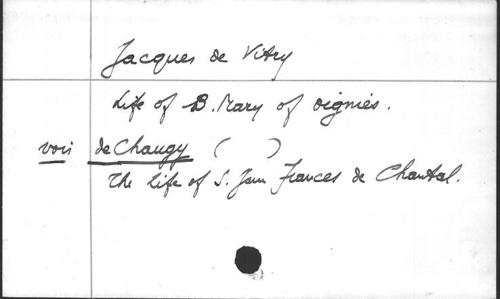 Jacques de Vitry
Life of B. Mary of Oignies.
voir de Chaugy ( )
The Life of S. Jane Frances de Chantal.